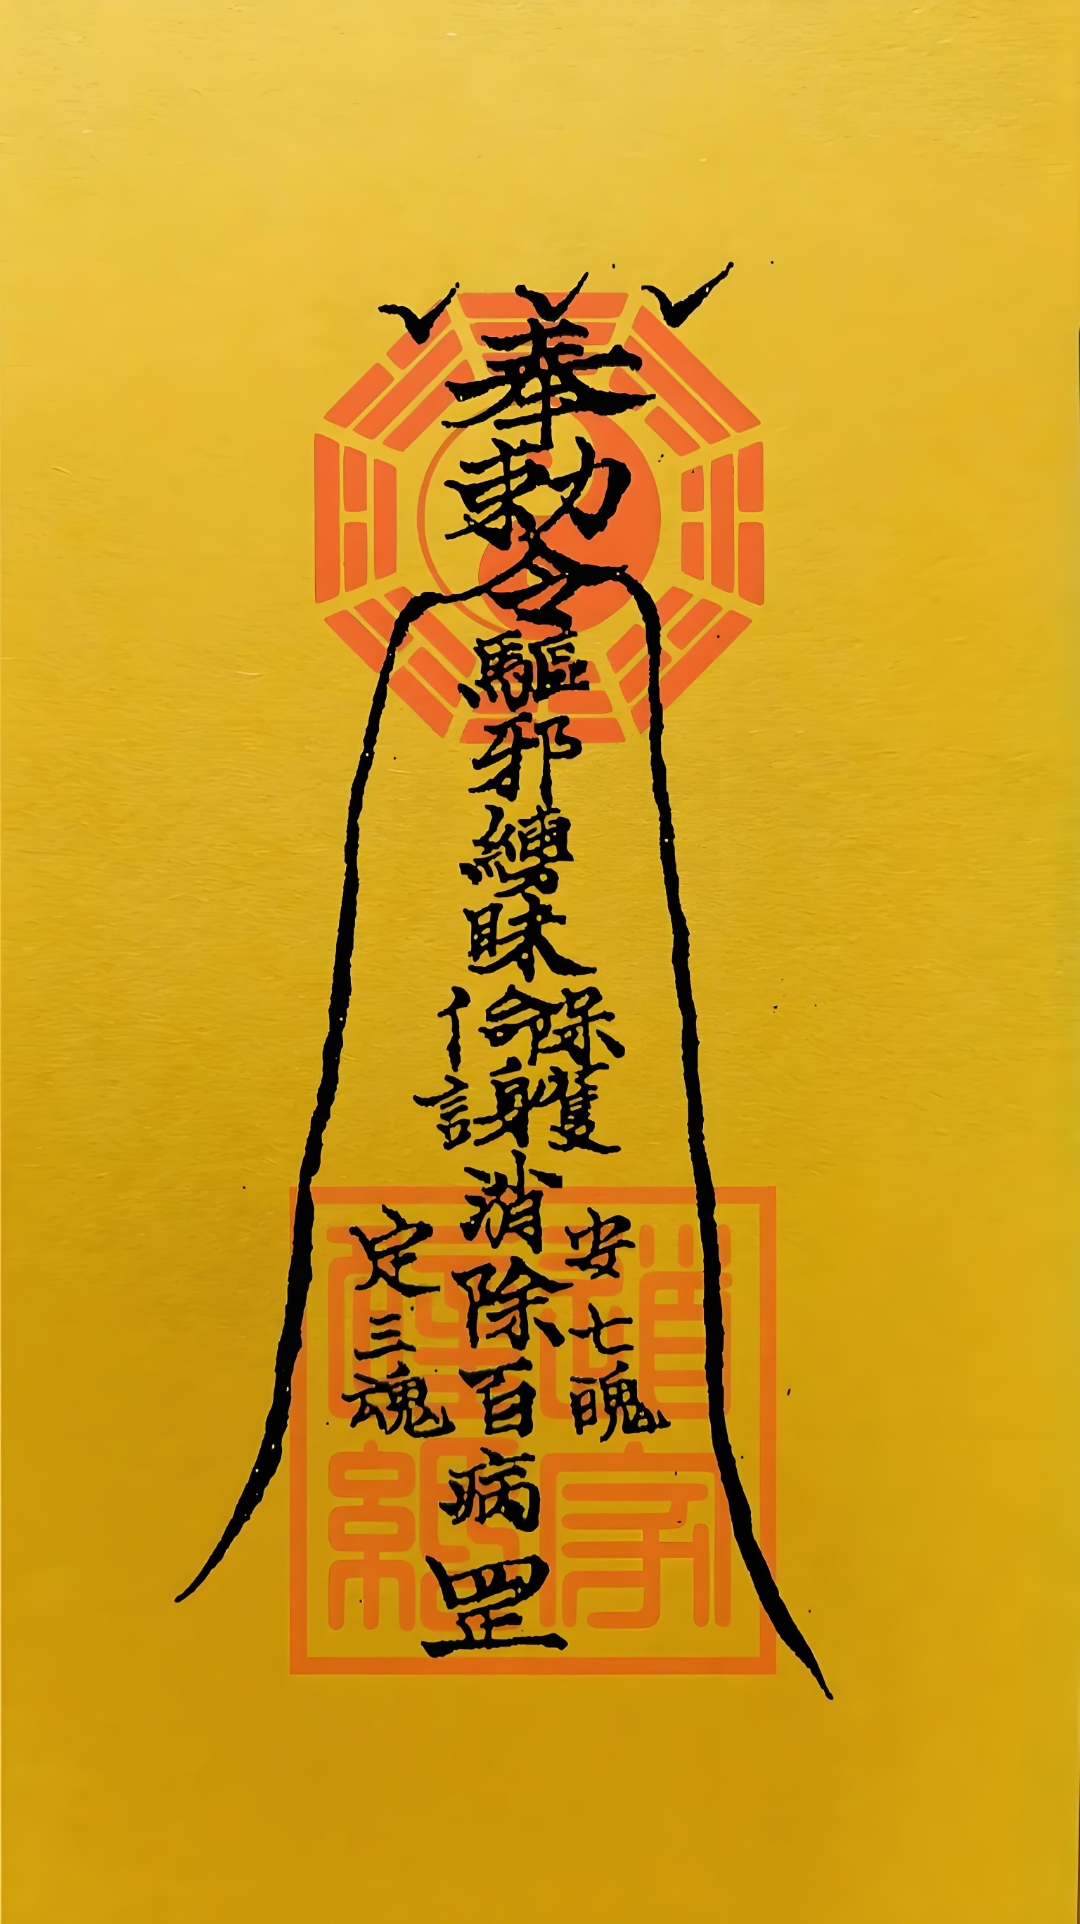 奉勅令
驅邪縛眛
保命護身
消除百病
罡
安七魄
定三魂